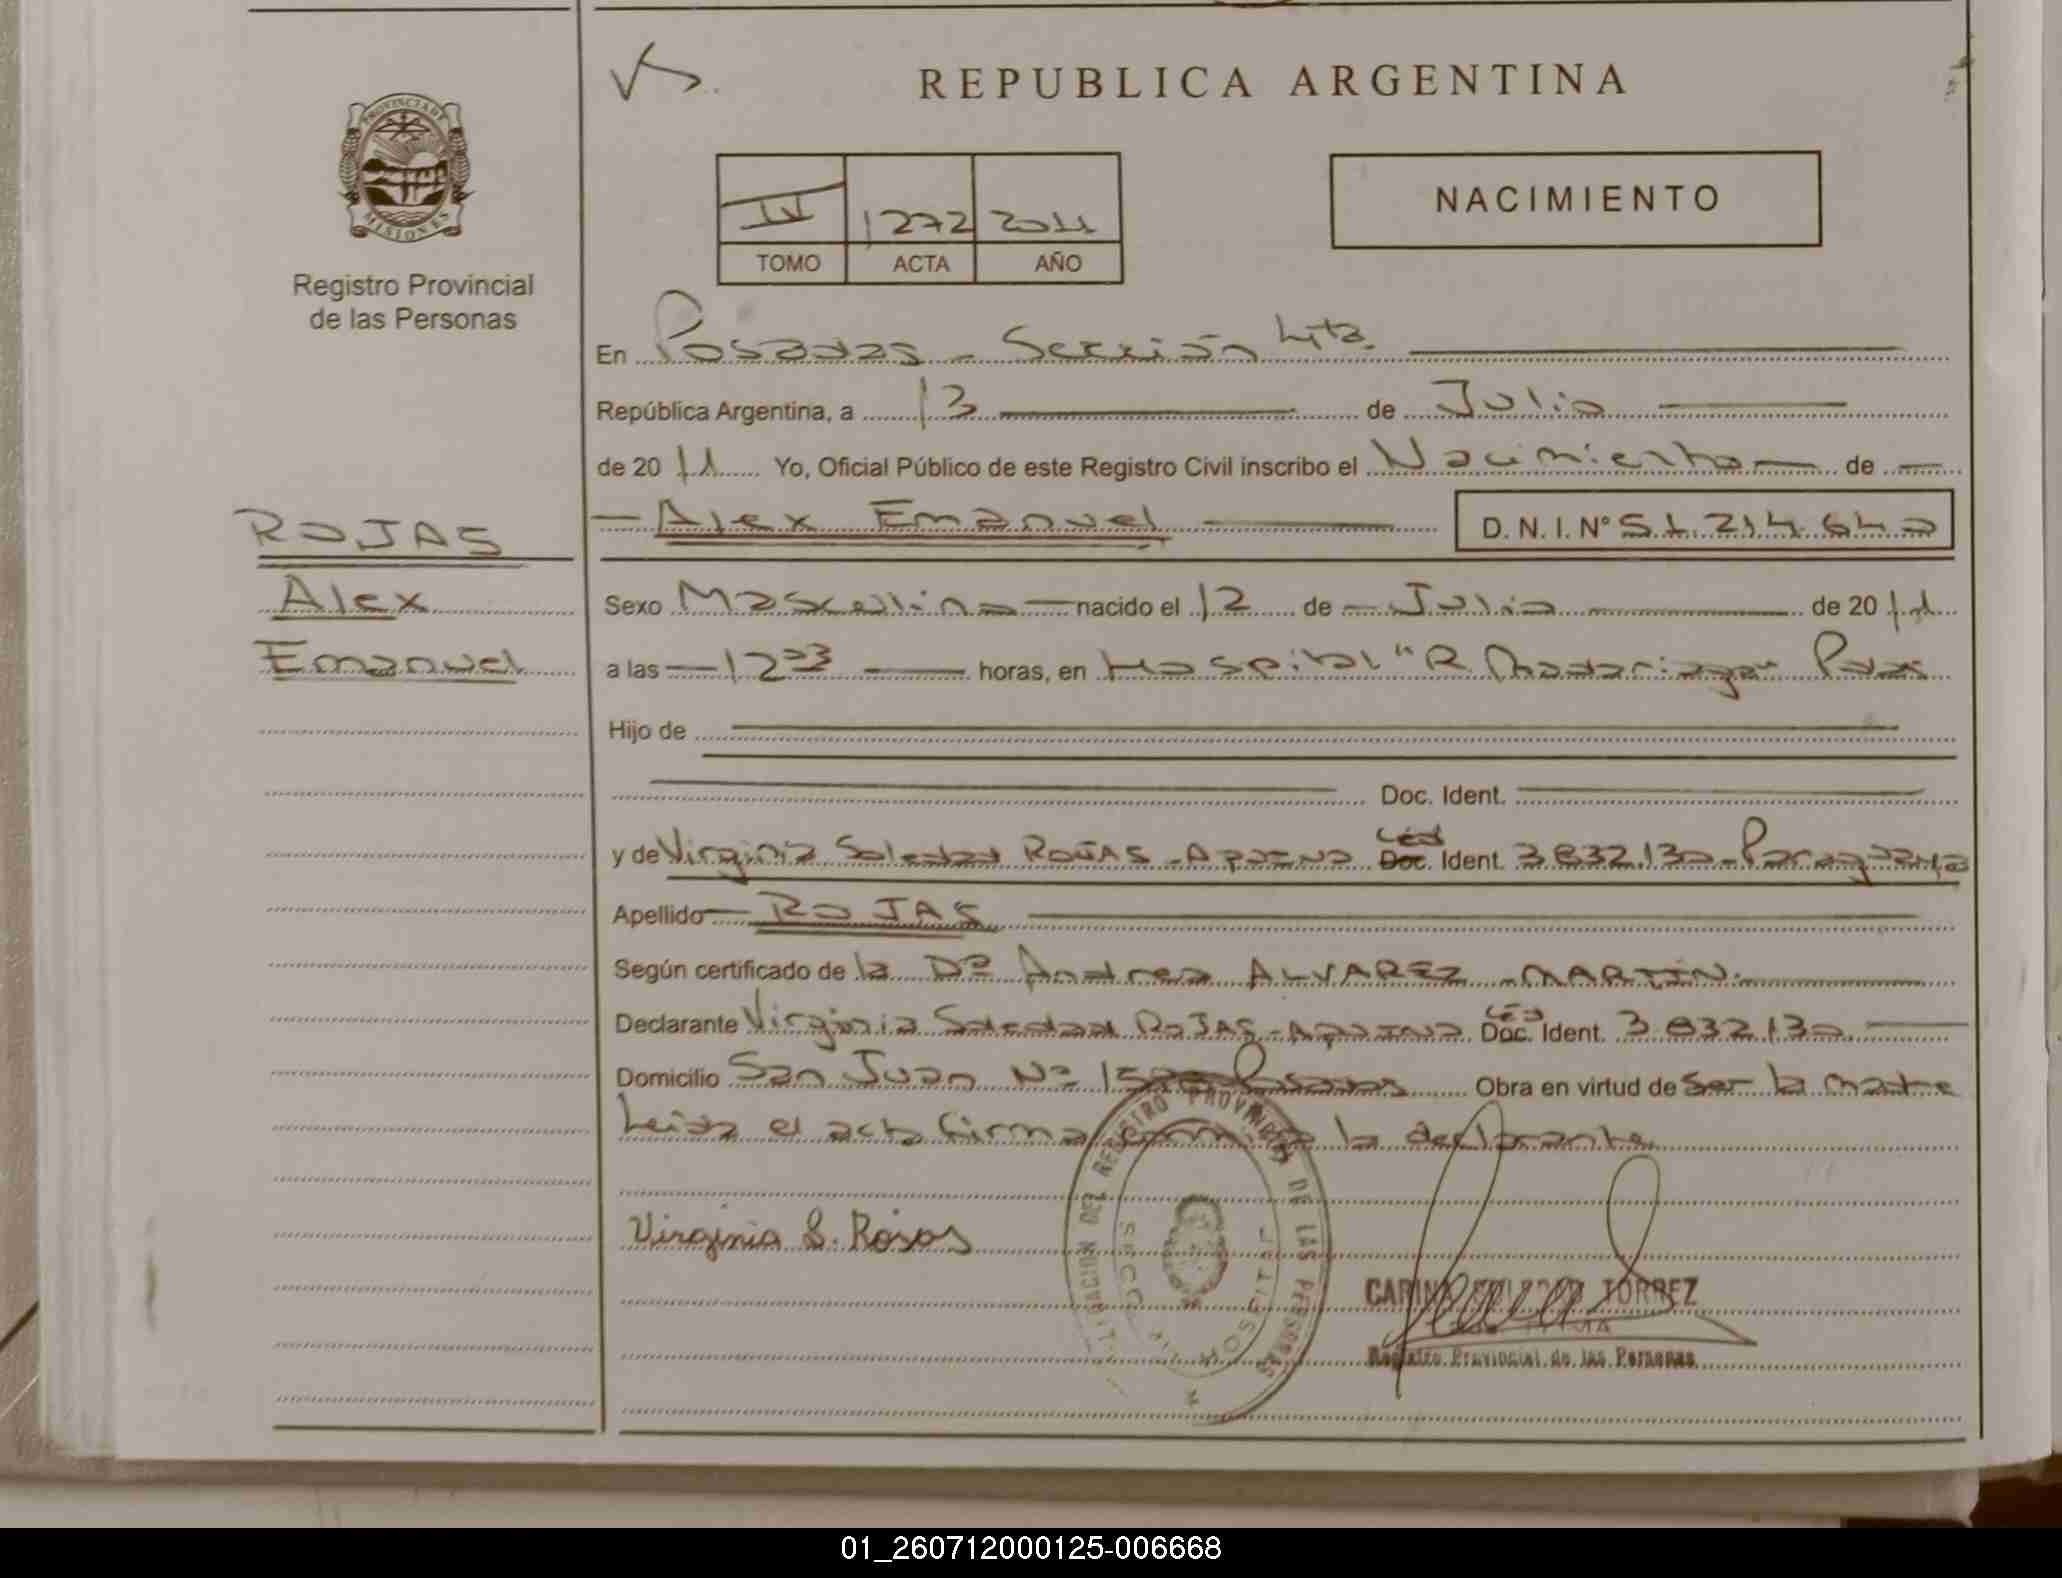 REPUBLICA ARGENTINA
PROVINCIA DE
MISIONES
Registro Provincial
de las Personas
NACIMIENTO
IV 1272 2011
TOMO ACTA AÑO
En Posadas - Sección 4ta.
República Argentina, a 13 de Julio
de 2011 Yo, Oficial Público de este Registro Civil inscribo el Nacimiento de
Alex Emanuel D. N. I. N° 51.214.640
ROJAS
Alex
Emanuel
Sexo Masculino nacido el 12 de Julio de 2011
a las 12 03 horas, en Hospital "R. Madariaga" Pdas
Hijo de
Doc. Ident.
y de Virginia Soledad ROJAS - Ced Doc. Ident. 3832.130 - Paraguaya
Apellido ROJAS
Según certificado de la Dra Andrea ALVAREZ - MARTIN.
Declarante Virginia Soledad ROJAS - Ced Doc. Ident. 3.832.130
Domicilio San Juan Nº Posadas Obra en virtud de Ser la madre
Leida el acta firma conmigo la declarante.
Virginia S. Rojas
DEL REGISTRO PROVINCIAL DE LAS PERSONAS
HOSPITAL
TORREZ
Registro Provincial de las Personas
01_260712000125-006668